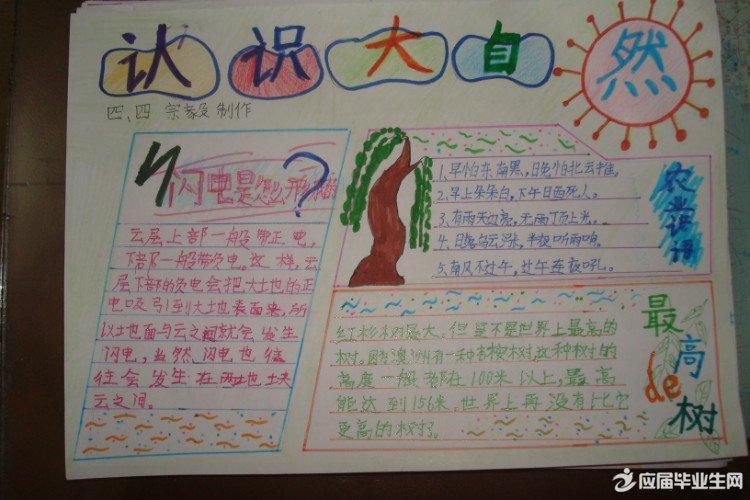 认识大自然
四、四 宗毅制作
闪电是怎么形
?
云层上部一般带正电,
下部一般带负电。这样,云
层下部的负电会把大地的正
电吸引到大地表面来,所
以地面与云之间就会发生
闪电,当然,闪电也往
往会发生在两
云之间。
1.早怕东南黑,晚怕北云推。
2.早上朱朱白,下午日西死人。
3.有雨天边亮,无雨顶上光。
4.日落乌云涨,半夜听雨响。
5.南风不过午,过午连夜吼。
农业谚语
红杉树最大。但是不是世界上最高的
树。因为澳洲有一种杏桉树,这种树的
高度一般都在100米以上,最高
能达到156米。世界上再没有比它
更高的树了。
最高de树
应届毕业生网